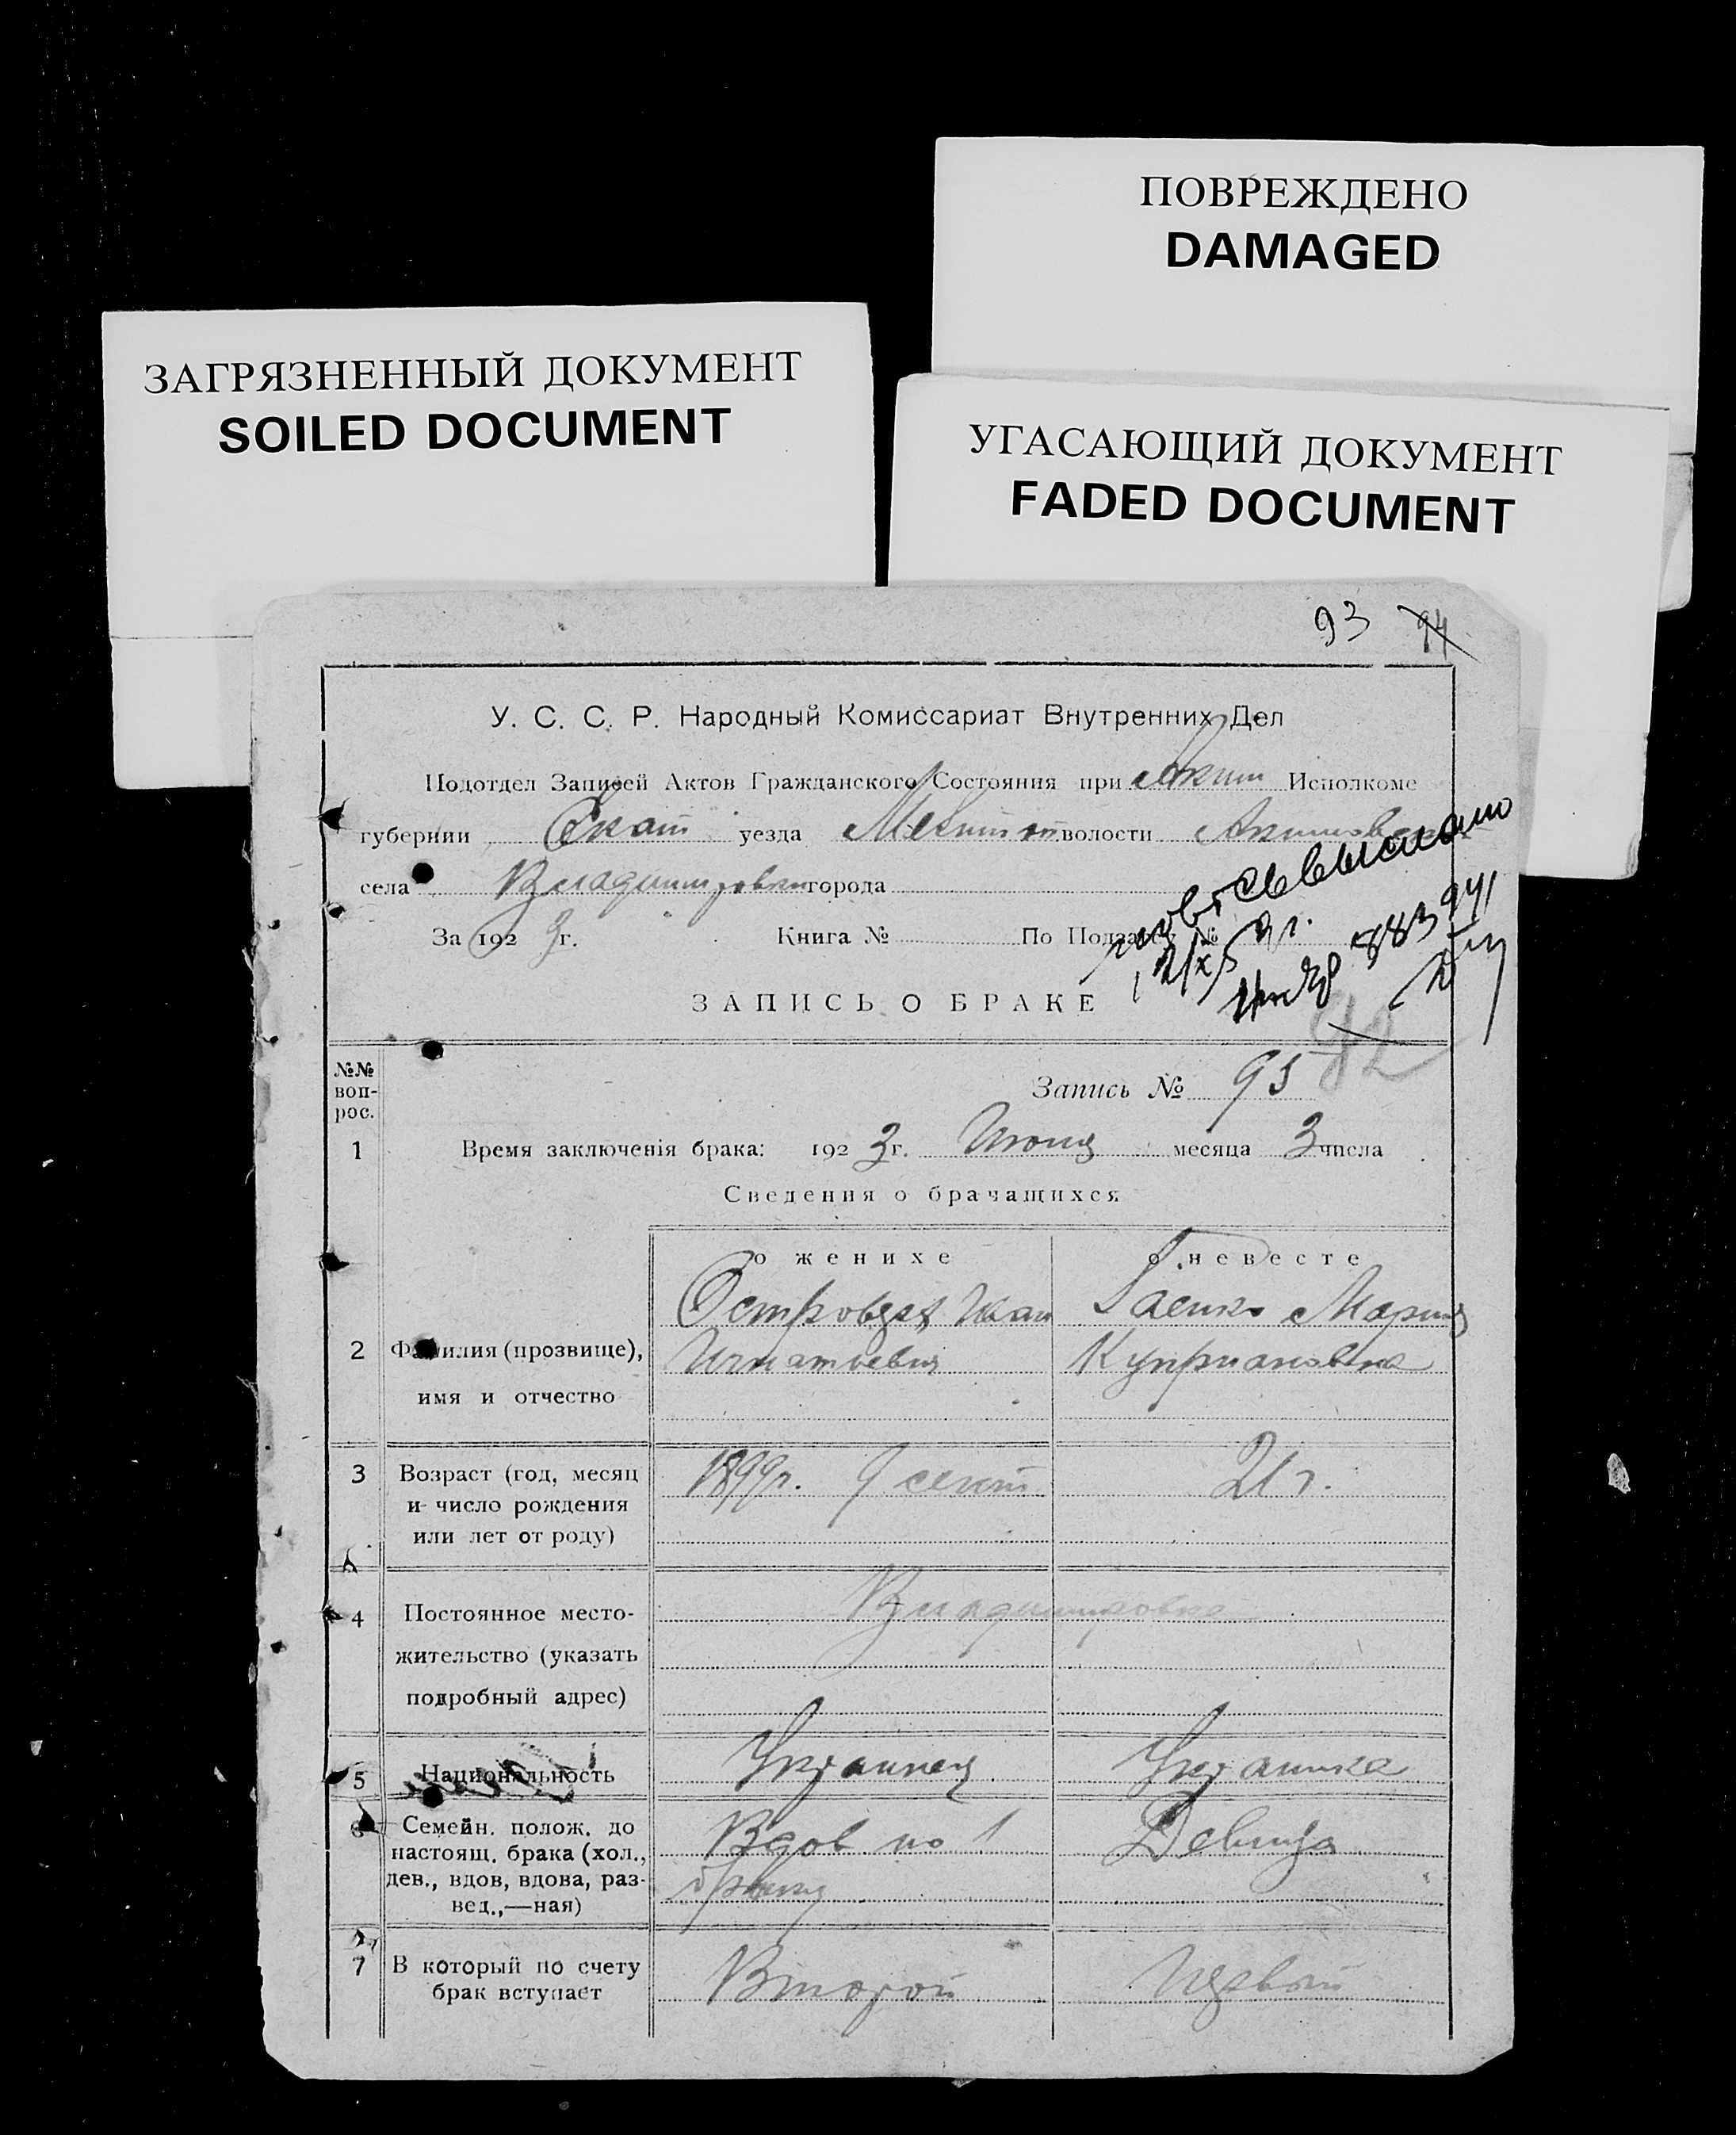 ПОВРЕЖДЕНО
DAMAGED
ЗАГРЯЗНЕННЫЙ ДОКУМЕНТ
SOILED DOCUMENT
УГАСАЮЩИЙ ДОКУМЕНТ
FADED DOCUMENT
93 94
У. С. С. Р. Народный Комиссариат Внутренних Дел
Подотдел Записей Актов Гражданского Состояния при Аким Исполкоме
губернии Екат уезда Мелитоп волости Акимовск
села Владимировки города
За 1923 г. Книга № По Подзагсу №
выслано
ЗАПИСЬ О БРАКЕ
92
№№ воп-рос.
Запись № 93
1 Время заключенія брака: 1923 г. Июня месяца 3 числа
Сведения о брачащихся
о женихе о невесте
Иван Мария
2 Фамилия (прозвище), Игнатьевич Куприановна
имя и отчество
3 Возраст (год, месяц 1899г. 9 сент 21 г.
и число рождения
или лет от роду)
4 Постоянное место- Владимировка
жительство (указать
подробный адрес)
5 Национальность Украинец Украинка
6 Семейн. полож. до Вдов по 1 Девица
настоящ. брака (хол.,
дев., вдов, вдова, раз- браку
вед.,—ная)
7 В который по счету Второй Первый
брак вступает